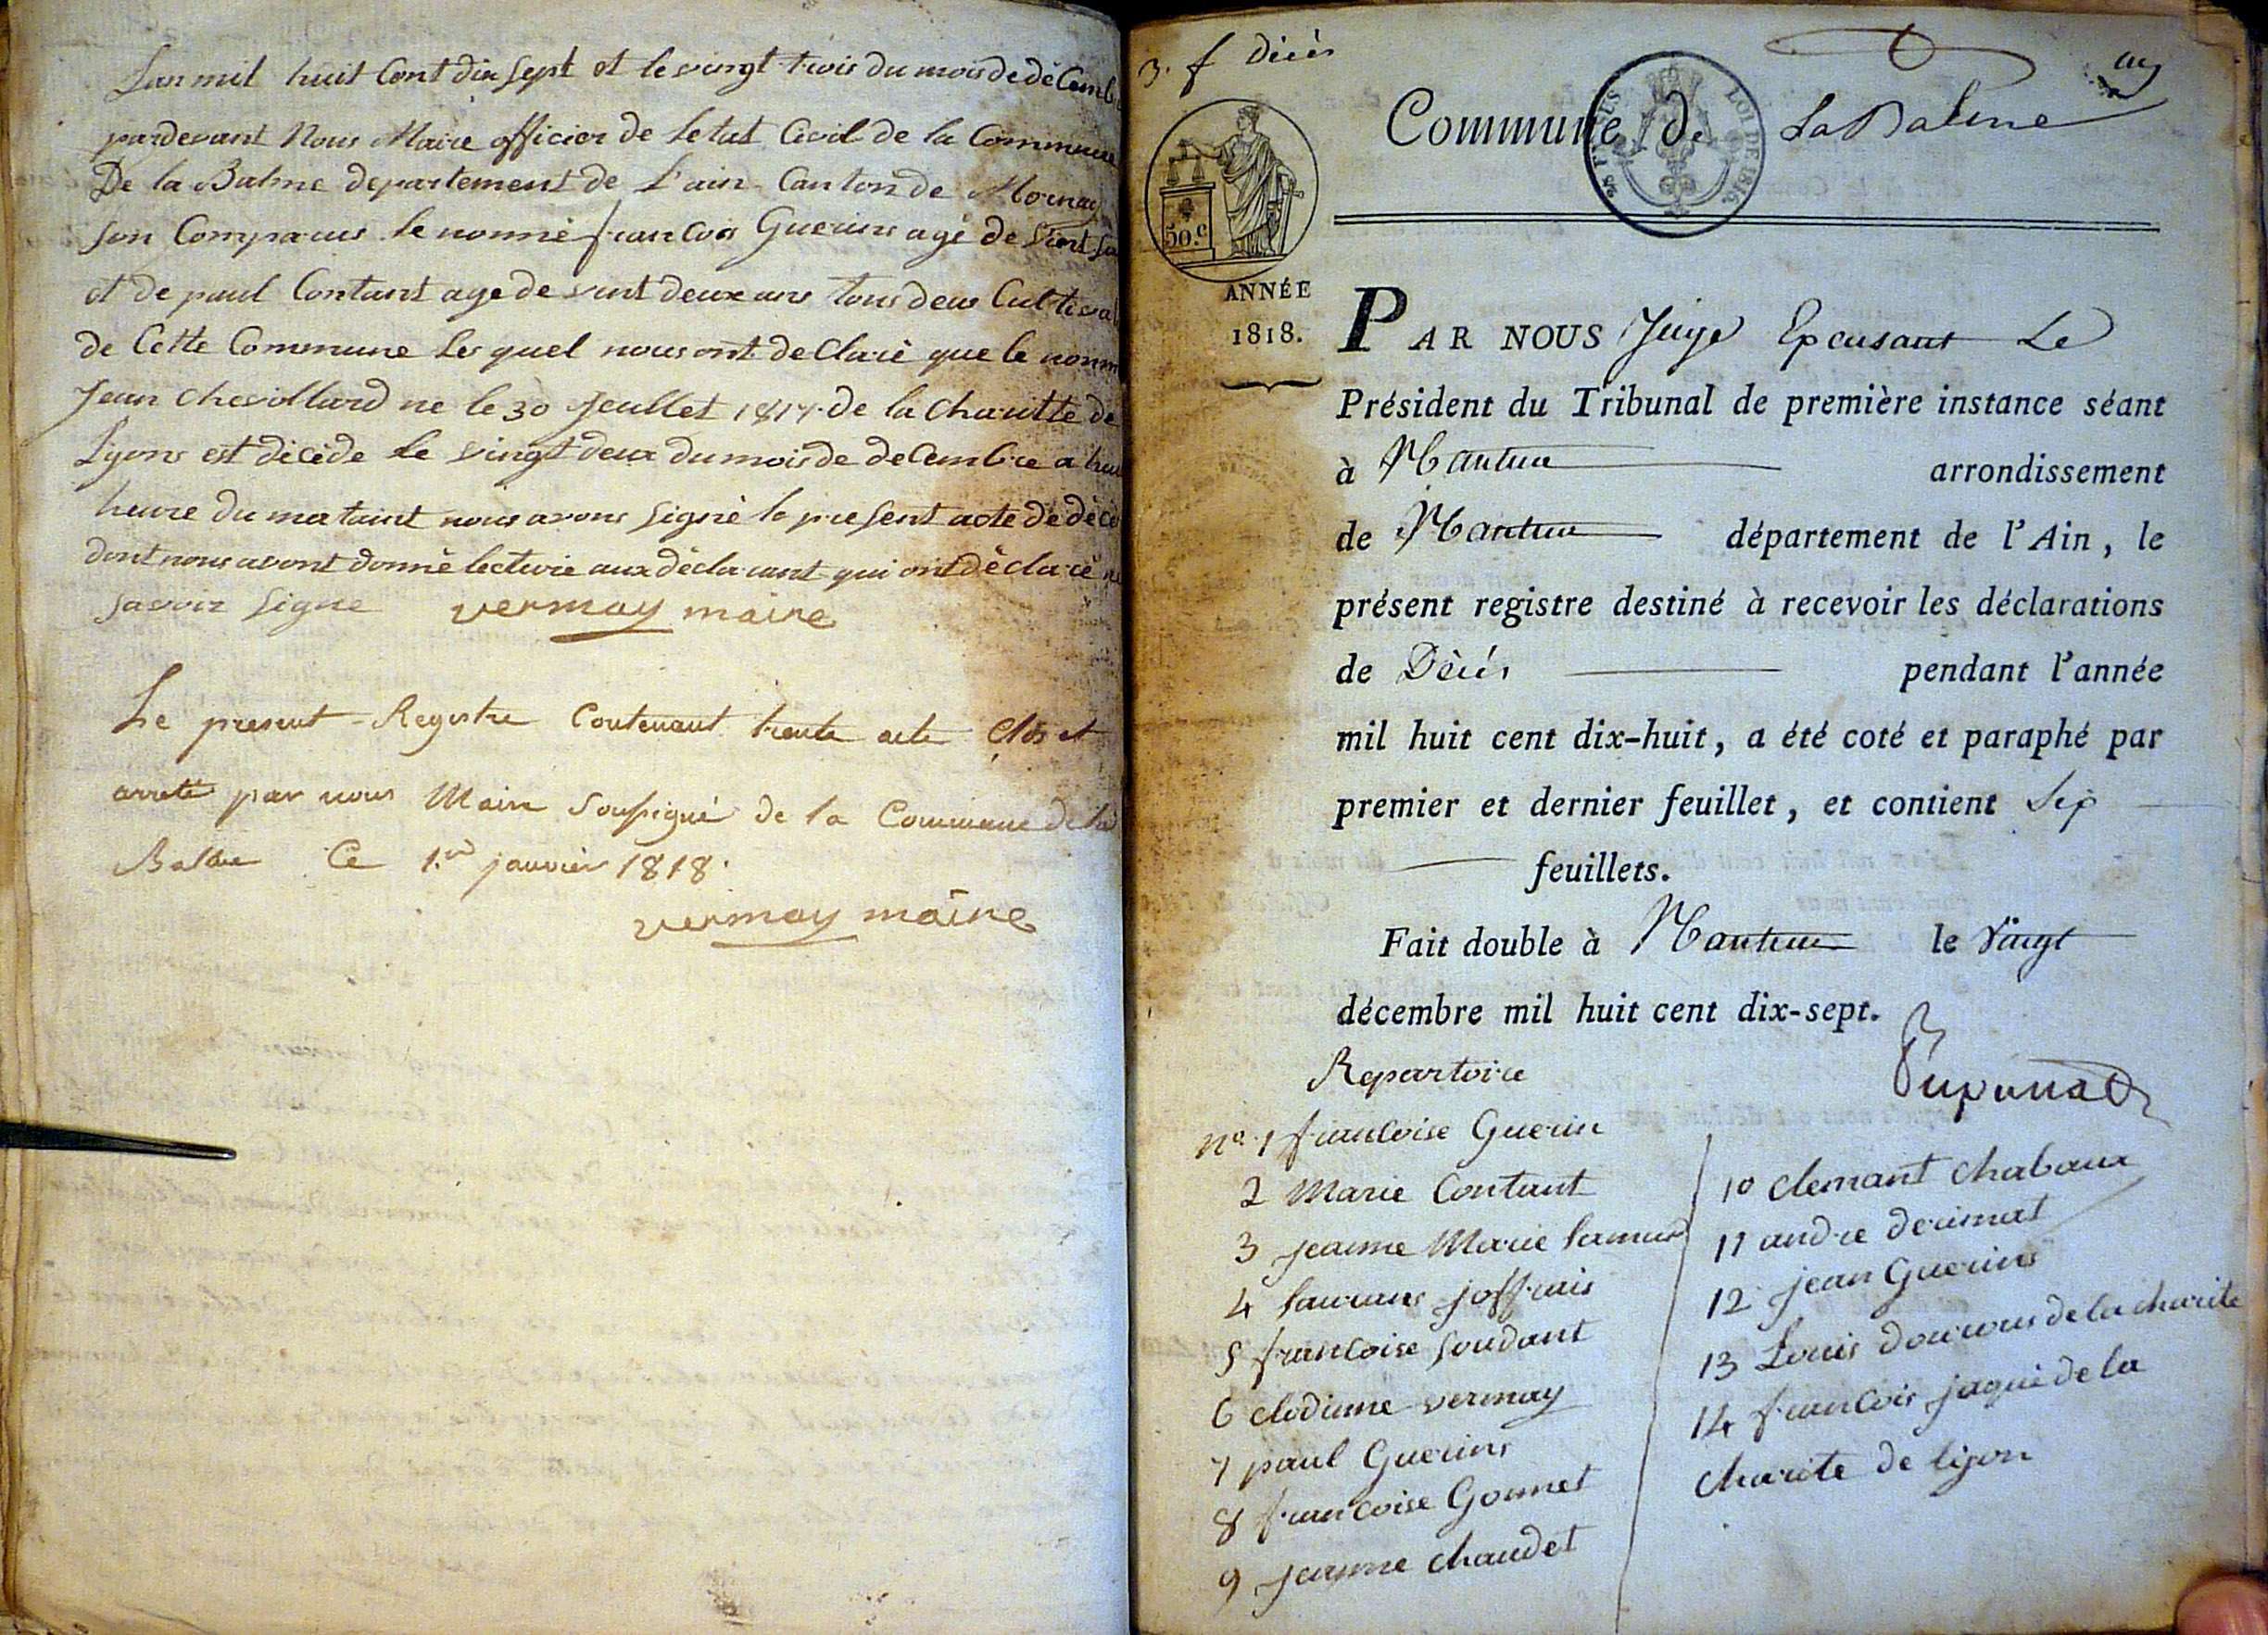 Lan mil huit Cent dix sept et le vingt trois du mois de décemb
pardevant Nous Maire officier de letat Civil de la Commune
De la Balme departement de L'ain Canton de Mornay
son Comparus le nommé francois Guerins agé de
et de paul Contant age de vint deux ans tous deux Cultiva
de Cette Commune Les quel nous ont declaré que le nomm
Jean Chevollard ne le 30 Jeullet 1817 de la Charitte de
Lyons est décéde le vingt deux du mois de decembre a
heure du mataint nous avons signé le present acte de décé
dont nous avont donné lecture aux déclarant qui ont déclaré ne
savoir signe vermay maire
Le present Registre Contenant trente acte Clos et
arrete par nous Maire soussigné de la Commune de la
Balme Ce 1.er janvier 1818.
vermay maire
3. f Décès
Commune de La Balme
25 P.
LOI DE 1816
50.c
ANNÉE
1818.
PAR NOUS Juge Le
Président du Tribunal de première instance séant
à Nantua arrondissement
de Nantua département de l'Ain, le
présent registre destiné à recevoir les déclarations
de Décès pendant l'année
mil huit cent dix-huit, a été coté et paraphé par
premier et dernier feuillet, et contient Six
feuillets.
Fait double à Nantua le Vingt
décembre mil huit cent dix-sept.
Repartoire
no. 1 francoise Guerin
2 Marie Contant
3 jeanne Marie
4 Laurans joffrais
5 francoise soudant
6 clodinne vermay
7 paul Guerins
8 francoise Gonnet
9 jeanne chaudet
10 clemant chabaux
11 andre
12 jean Guerins
13 Louis de la charite
14 francois jaque de la
charite de lijon